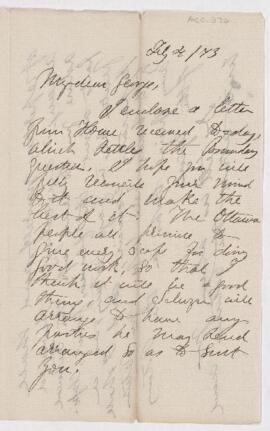 Feby 4/73
My dear George,
I enclose a letter
from Home received to-day,
which settles the Boundary
question. I hope you will
fully reconcile your mind
to it and make the
best of it. The Ottawa
people all promise to
give every scope for doing
good work, so that I
think it will be a good
thing, and Selwyn will
arrange to have any
parties he may send
arranged so as to suit
you.